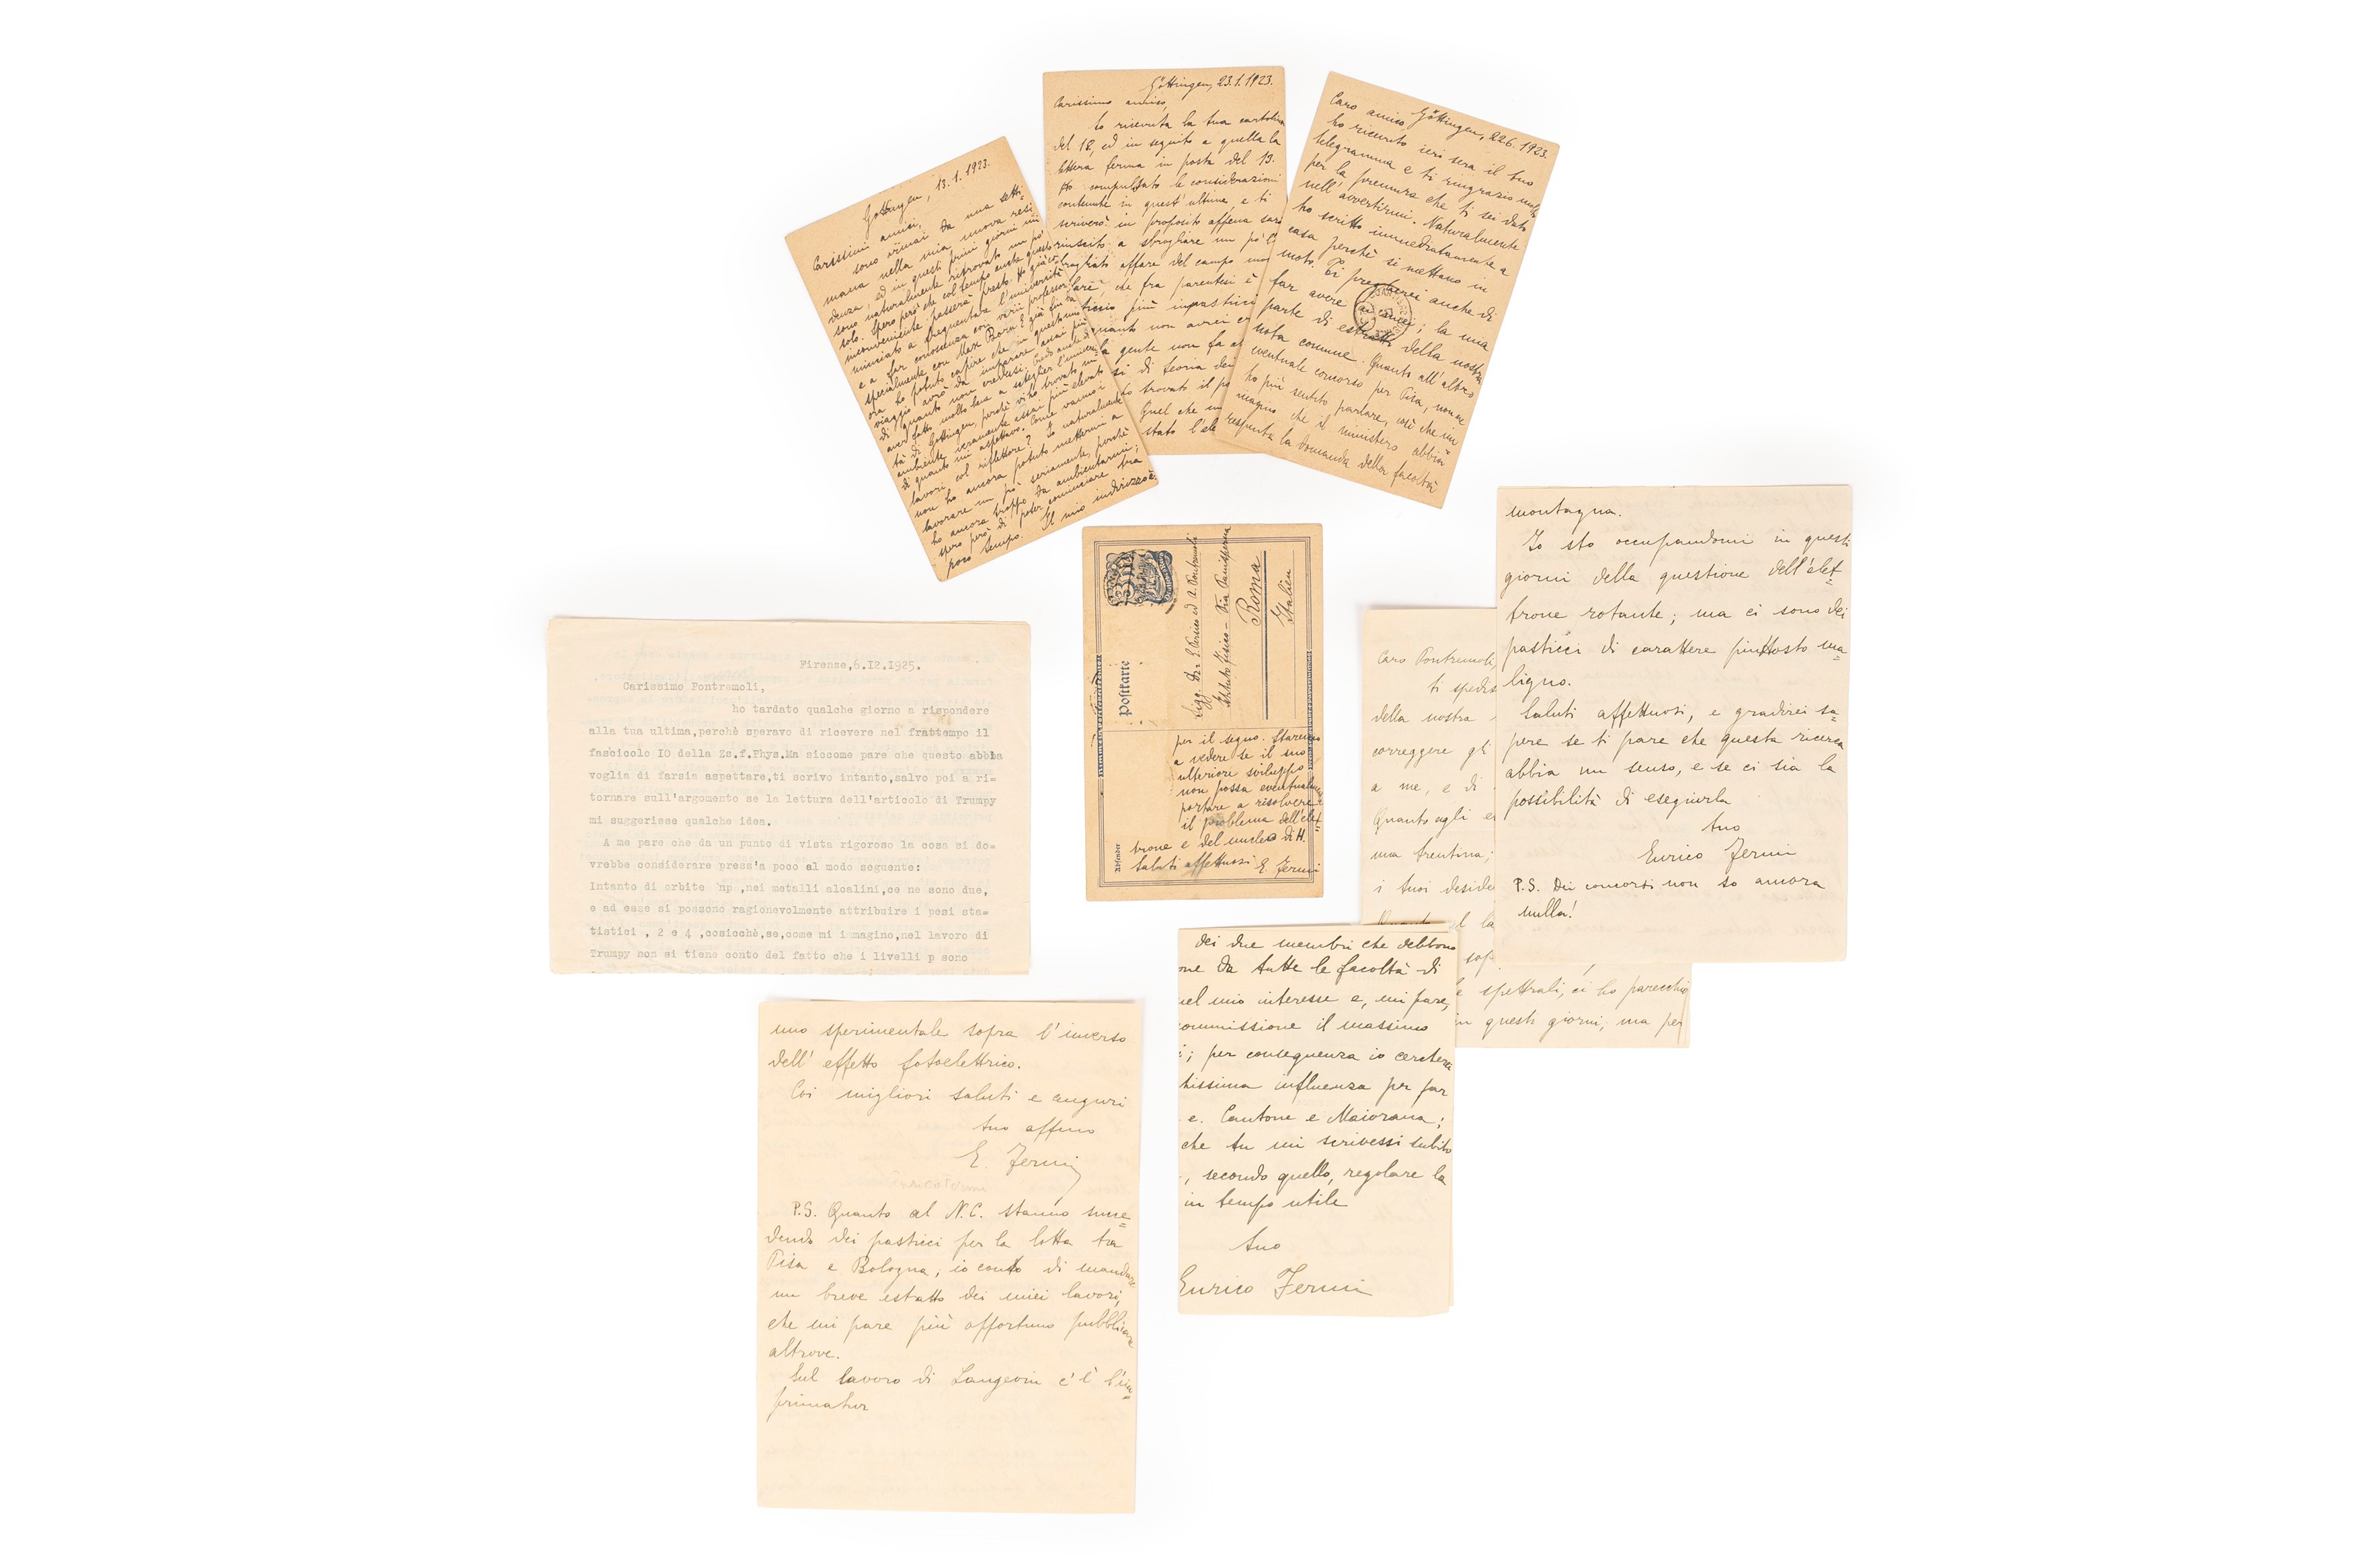 Göttingen, 13.1.1923.
Carissimi amici,
sono ormai da una setti-
mana nella mia nuova resi
denza, ed in questi primi giorni mi
sono naturalmente ritrovato un pò
solo. Spero però che col tempo anche questo
inconveniente passerà presto. Ho già co
minciato a frequentare l'università
e a far conoscenza con varii professori
specialmente con Max Born. E già fin da
ora ho potuto capire che in questo mio
viaggio avrò da imparare assai più
di quanto non credessi. Credo anche di
aver fatto molto bene a scegliere l'universi
tà di Gottingen, perchè vi ho trovato un
ambiente veramente assai più elevato
di quanto mi aspettavo. Come vanno i
lavori col riflettore? Io naturalmente
non ho ancora potuto mettermi a
lavorare un pò seriamente, perchè
ho ancora troppo da ambientarmi;
spero però di poter cominciare tra
poco tempo. Il mio indirizzo è:
Göttingen, 23.1.1923.
Carissimo amico,
ho ricevuto la tua cartolina
del 12, ed in seguito a quella la
lettera ferma in posta del 13.
Ho compulsato le considerazioni
contenute in quest'ultima, e ti
scriverò in proposito appena sarò
riuscito a sbrogliare un pò l'
affare del campo
che fra parentesi è
più impastricci
quanto non avrei c
la gente non fa
si di teoria dei
to trovato il p
Quel che
stato l'ele
Caro amico, Göttingen, 22.6.1923.
ho ricevuto ieri sera il tuo
telegramma e ti ringrazio molto
per la premura che ti sei dato
nell'avvertirmi. Naturalmente
ho scritto immediatamente a
casa perchè si mettano in
moto. Ti pregherei anche di
far avere ai miei; la mia
parte di estratti della nostra
nota comune. Quanto all'altro
eventuale concorso per Pisa, non ne
ho più sentito parlare, così che im
magino che il ministero abbia
respinta la domanda della facoltà
Postkarte
Sigg. Dr. E. Persico ed A. Pontremoli
Istituto Fisico - Via Panisperna
Roma
Italien
Absender
per il segno. Staremo
a vedere se il suo
ulteriore sviluppo
non possa eventualmente
portare a risolvere
il problema dell'elet=
trone e del nucleo di H.
Saluti affettuosi E. Fermi
Firenze,6.12.1925.
Carissimo Pontremoli,
ho tardato qualche giorno a rispondere
alla tua ultima,perchè speravo di ricevere nel frattempo il
fascicolo IO della Zs.f.Phys.Ma siccome pare che questo abbia
voglia di farsia aspettare,ti scrivo intanto,salvo poi a ri=
tornare sull'argomento se la lettura dell'articolo di Trumpy
mi suggerisse qualche idea.
A me pare che da un punto di vista rigoroso la cosa si do=
vrebbe considerare press'a poco al modo seguente:
Intanto di orbite np ,nei metalli alcalini,ce ne sono due,
e ad esse si possono ragionevolmente attribuire i pesi sta=
tistici , 2 e 4 ,cosicchè,se,come mi immagino,nel lavoro di
Trumpy non si tiene conto del fatto che i livelli p sono
Caro Pontremoli
ti spedis
della nostra
correggere gli
a me, e di
Quanto agli e
ma trentina;
i tuoi deside
Quanto al la
sop
e spettrali, ci ho parecchio
in questi giorni; ma per
montagna.
Io sto occupandomi in questi
giorni della questione dell'elet=
trone rotante; ma ci sono dei
pasticci di carattere piuttosto ma=
ligno.
Saluti affettuosi, e gradirei sa=
pere se ti pare che questa ricerca
abbia un senso, e se ci sia la
possibilità di eseguirla
tuo
Enrico Fermi
P.S. Dei concorsi non so ancora
nulla!
dei due membri che debbono
one da tutte le facoltà di
nel mio interesse e, mi pare,
commissione il massimo
i; per conseguenza io cercherei
tissima influenza per far
e. Cantone e Maiorana;
che tu mi scrivessi subito
, secondo quello, regolare la
in tempo utile
tuo
Enrico Fermi
uno sperimentale sopra l'inverso
dell'effetto fotoelettrico.
Coi migliori saluti e auguri
tuo affmo
E. Fermi
P.S. Quanto al N.C. stanno succe=
dendo dei pasticci per la lotta tra
Pisa e Bologna; io conto di mandare
un breve estatto dei miei lavori,
che mi pare più opportuno pubblicare
altrove.
Sul lavoro di Langevin c'è l'im=
primatur